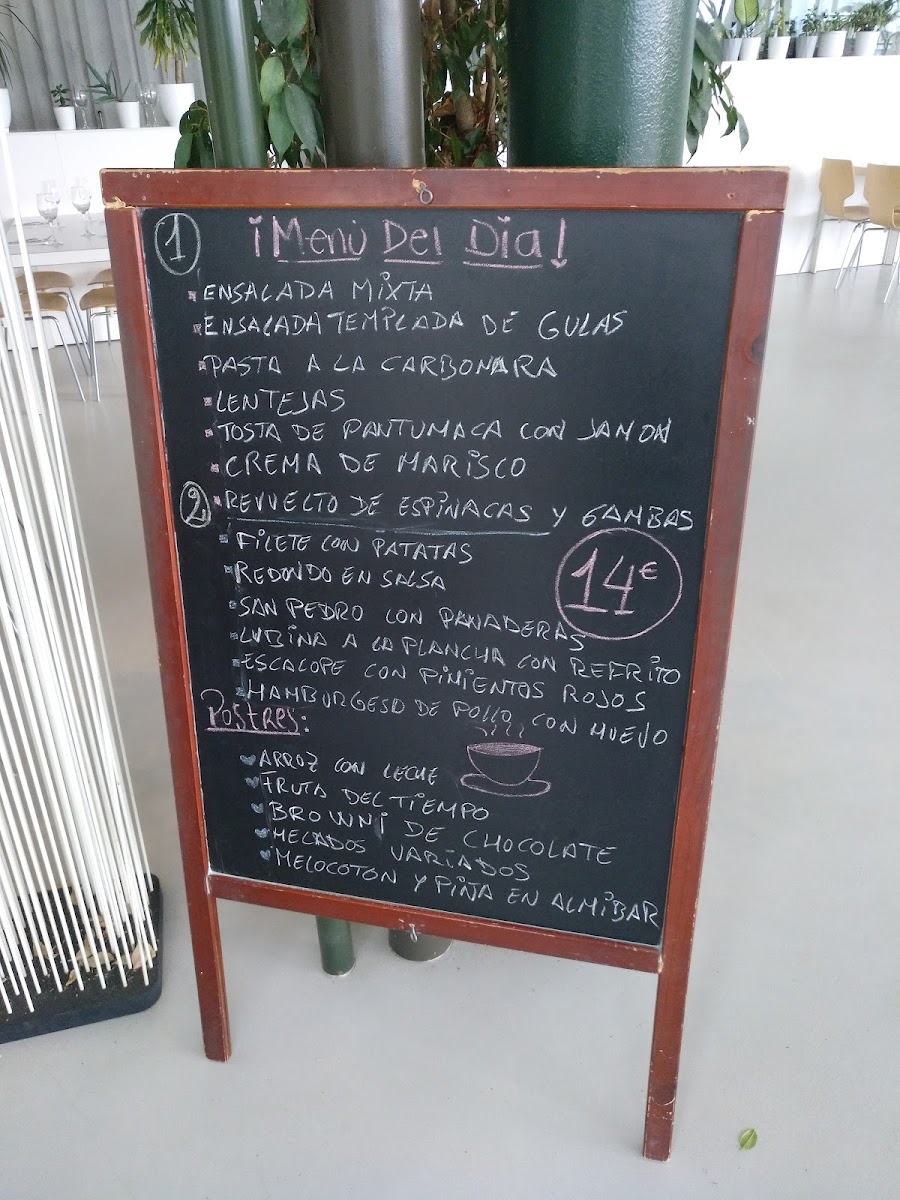 1 ¡Menú Del Dia!
ENSALADA MIXTA
ENSALADA TEMPLADA DE GULAS
PASTA A LA CARBONARA
LENTEJAS
TOSTA DE PANTUMACA CON JAMON
CREMA DE MARISCO
2 REVUELTO DE ESPINACAS Y GAMBAS
FILETE CON PATATAS
14€
REDONDO EN SALSA
SAN PEDRO CON PANADERAS
LUBINA A LA PLANCHA CON REFRITO
ESCALOPE CON PIMIENTOS ROJOS
HAMBURGESO DE POLLO CON HUEVO
Postres:
ARROZ CON LECHE
FRUTA DEL TIEMPO
BROWNI DE CHOCOLATE
HELADOS VARIADOS
MELOCOTON Y PIÑA EN ALMIBAR